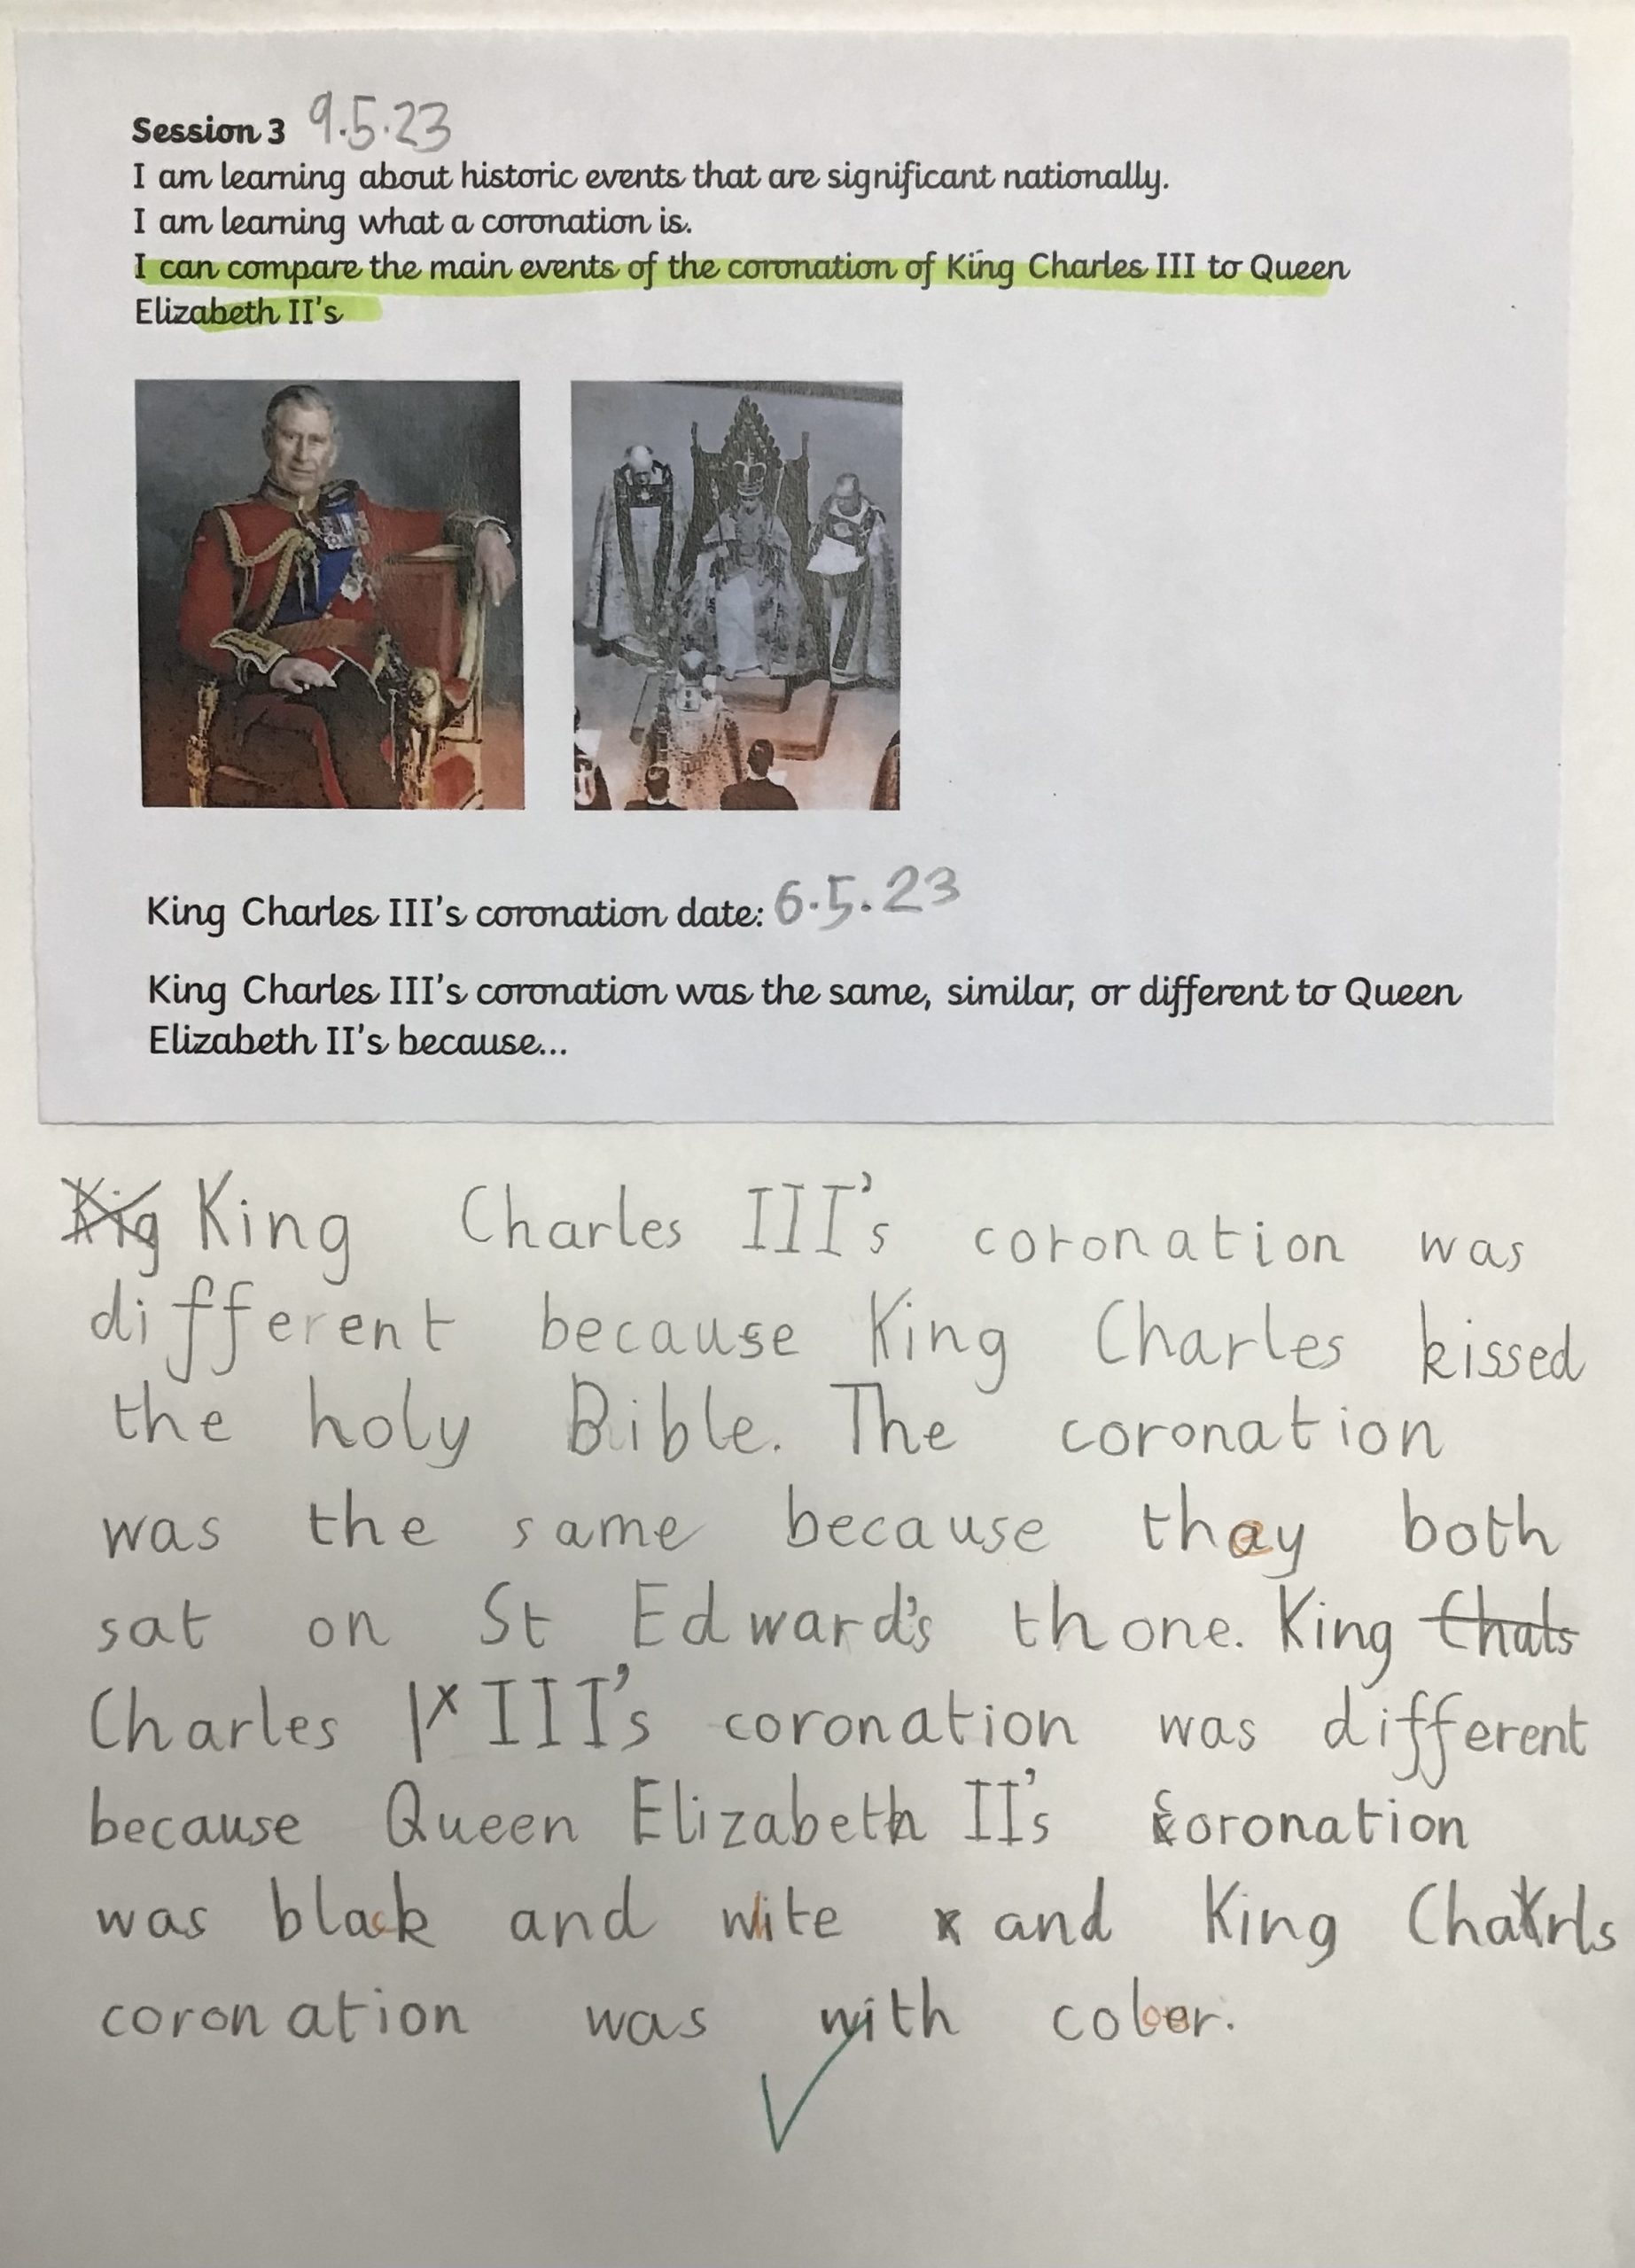 Session 3 9.5.23
I am learning about historic events that are significant nationally.
I am learning what a coronation is.
I can compare the main events of the coronation of King Charles III to Queen
Elizabeth II's
King Charles III's coronation date: 6.5.23
King Charles III's coronation was the same, similar, or different to Queen
Elizabeth II's because...
Kig King Charles III's coronation was
different because King Charles kissed
the holy Bible. The coronation
was the same because they both
sat on St Edward's thone. King Chals
Charles III's coronation was different
because Queen Elizabeth II's coronation
was black and wite and King Charls
coronation was with coloer.